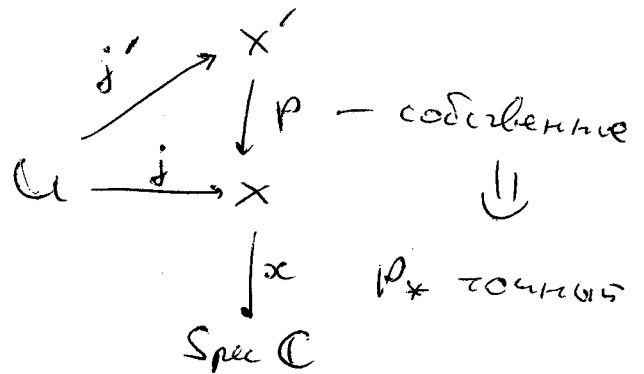 j' X'
p — собственные
U j X
⇓
x p* точный
Spec C